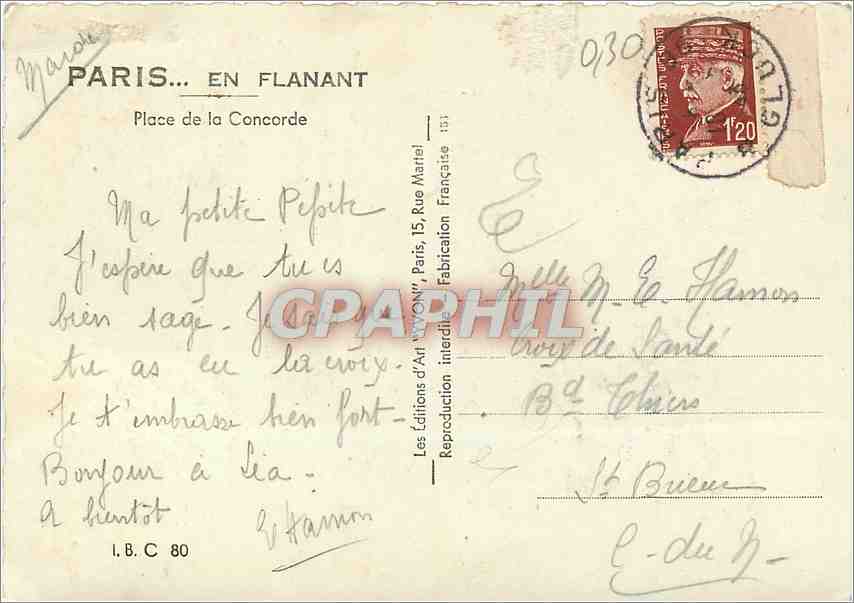 Mardi
PARIS... EN FLANANT
Place de la Concorde
Ma petite Pépite
J'espère que tu es
bien sage. Je sais que
tu as eu la croix.
Je t'embrasse bien fort.
Bonjour à Léa.
A bientôt
E Hamon
I.B.C 80
Les Éditions d'Art "YVON", Paris, 15, Rue Martel
Reproduction interdite Fabrication Française
CPAPHIL
0,30
POSTES FRANÇAISES
1F20
PARIS
GLUCK
Melle M. E. Hamon
Croix de Santé
Bd Thiers
St Brieuc
C. du N.